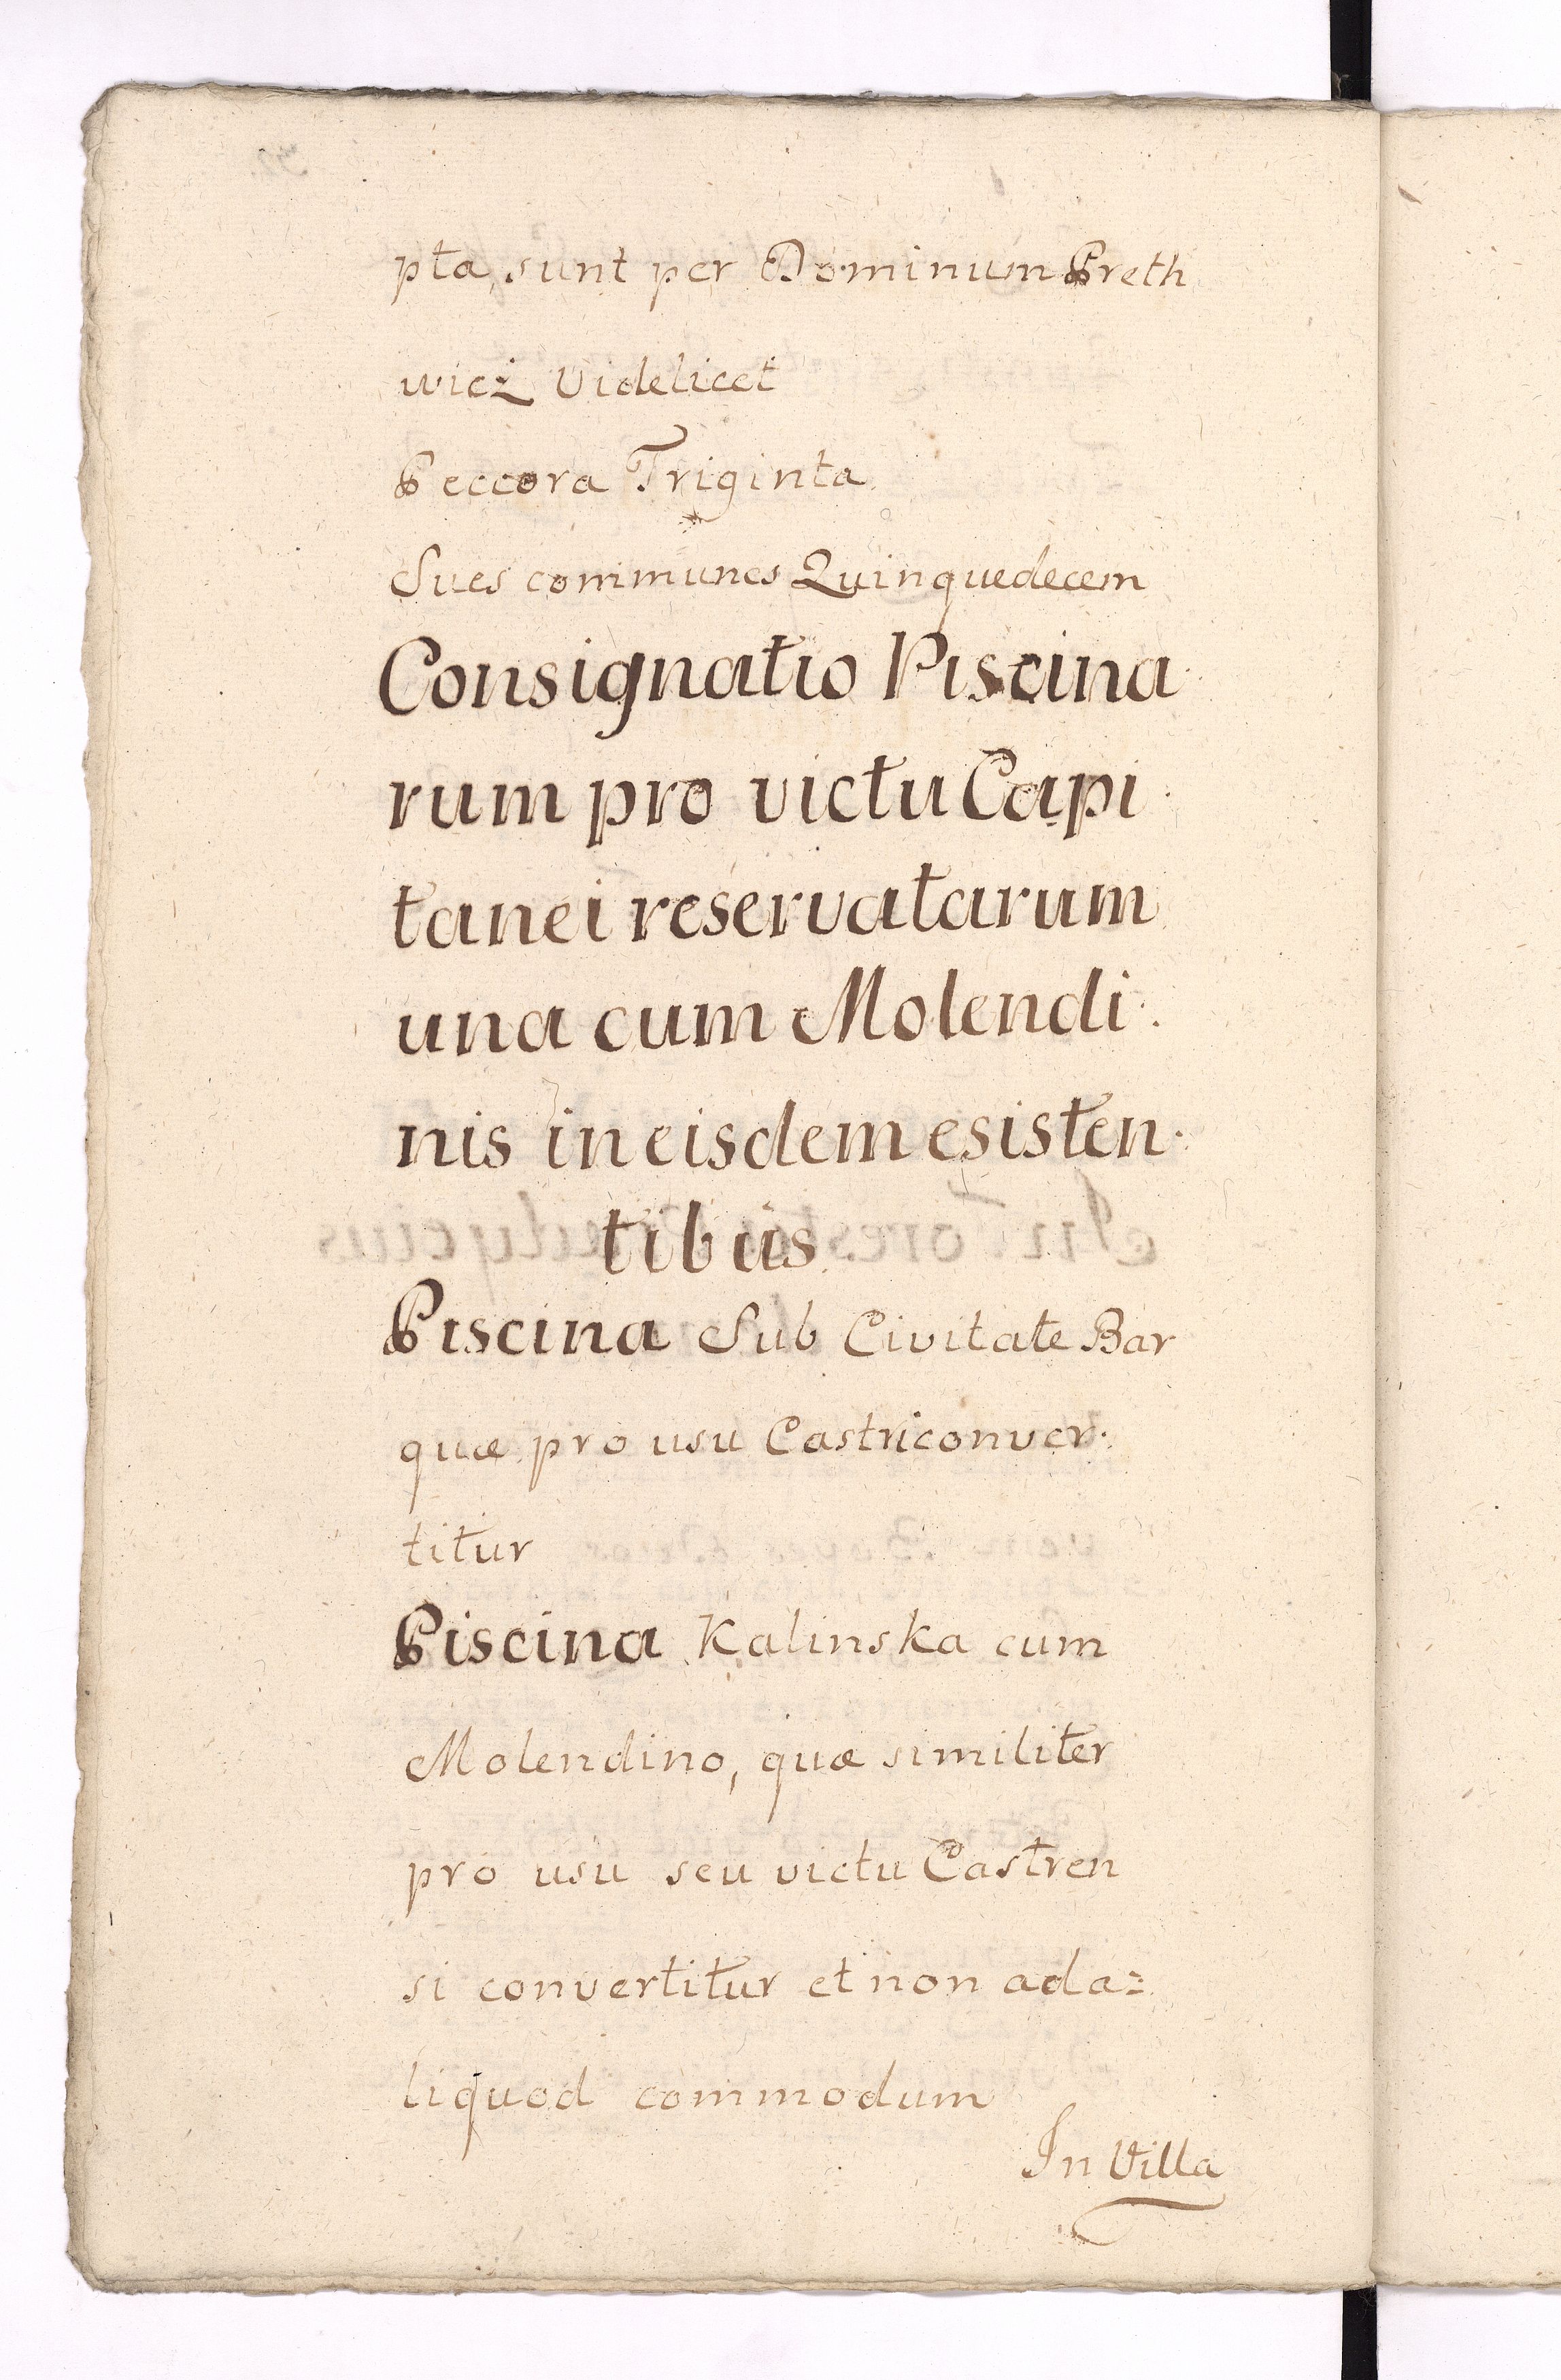 pta sunt per Dominum Preth
wicz Videlicet
Peccora Triginta
Sues communes Quinquedecem
Consignatio Piscina
rum pro victu Capi
tanei reservatarum
una cum Molendi
nis in eisdem esisten
tibus
Piscina Sub Civitate Bar
quæ pro usu Castri conver
titur
Piscina Kalinska cum
Molendino, quæ similiter
pro usu seu victu Castren
si convertitur et non ada=
liquod commodum
In Villa